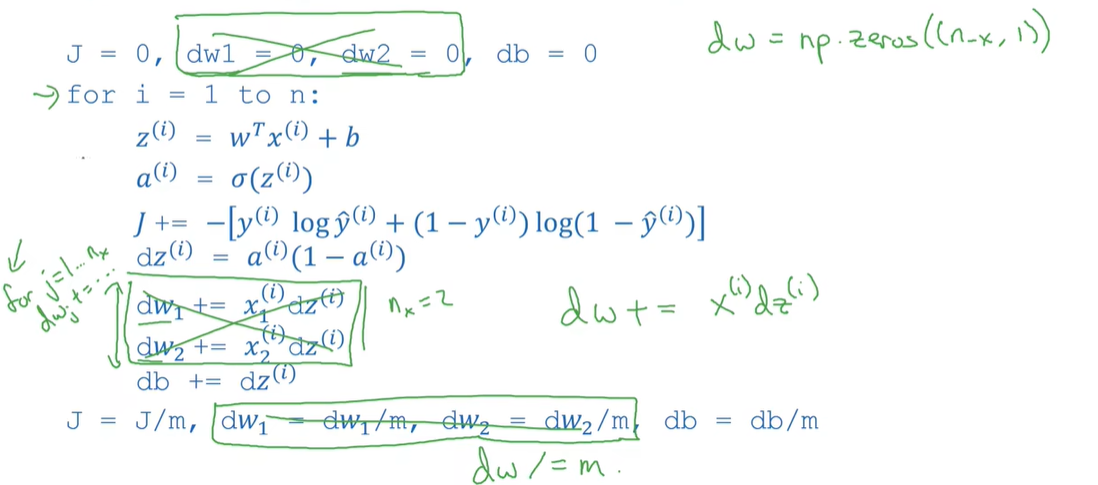 J = 0, dw1 = 0, dw2 = 0, db = 0
dw = np.zeros((n-x, 1))
→ for i = 1 to n:
z⁽ⁱ⁾ = wᵀx⁽ⁱ⁾ + b
a⁽ⁱ⁾ = σ(z⁽ⁱ⁾)
J += −[y⁽ⁱ⁾ log ŷ⁽ⁱ⁾ + (1 − y⁽ⁱ⁾) log(1 − ŷ⁽ⁱ⁾)]
dz⁽ⁱ⁾ = a⁽ⁱ⁾(1 − a⁽ⁱ⁾)
for j=1...nₓ
dwⱼ += ...
dw₁ += x₁⁽ⁱ⁾dz⁽ⁱ⁾
dw₂ += x₂⁽ⁱ⁾dz⁽ⁱ⁾
nₓ = 2
dw += x⁽ⁱ⁾dz⁽ⁱ⁾
db += dz⁽ⁱ⁾
J = J/m, dw₁ = dw₁/m, dw₂ = dw₂/m, db = db/m
dw /= m.